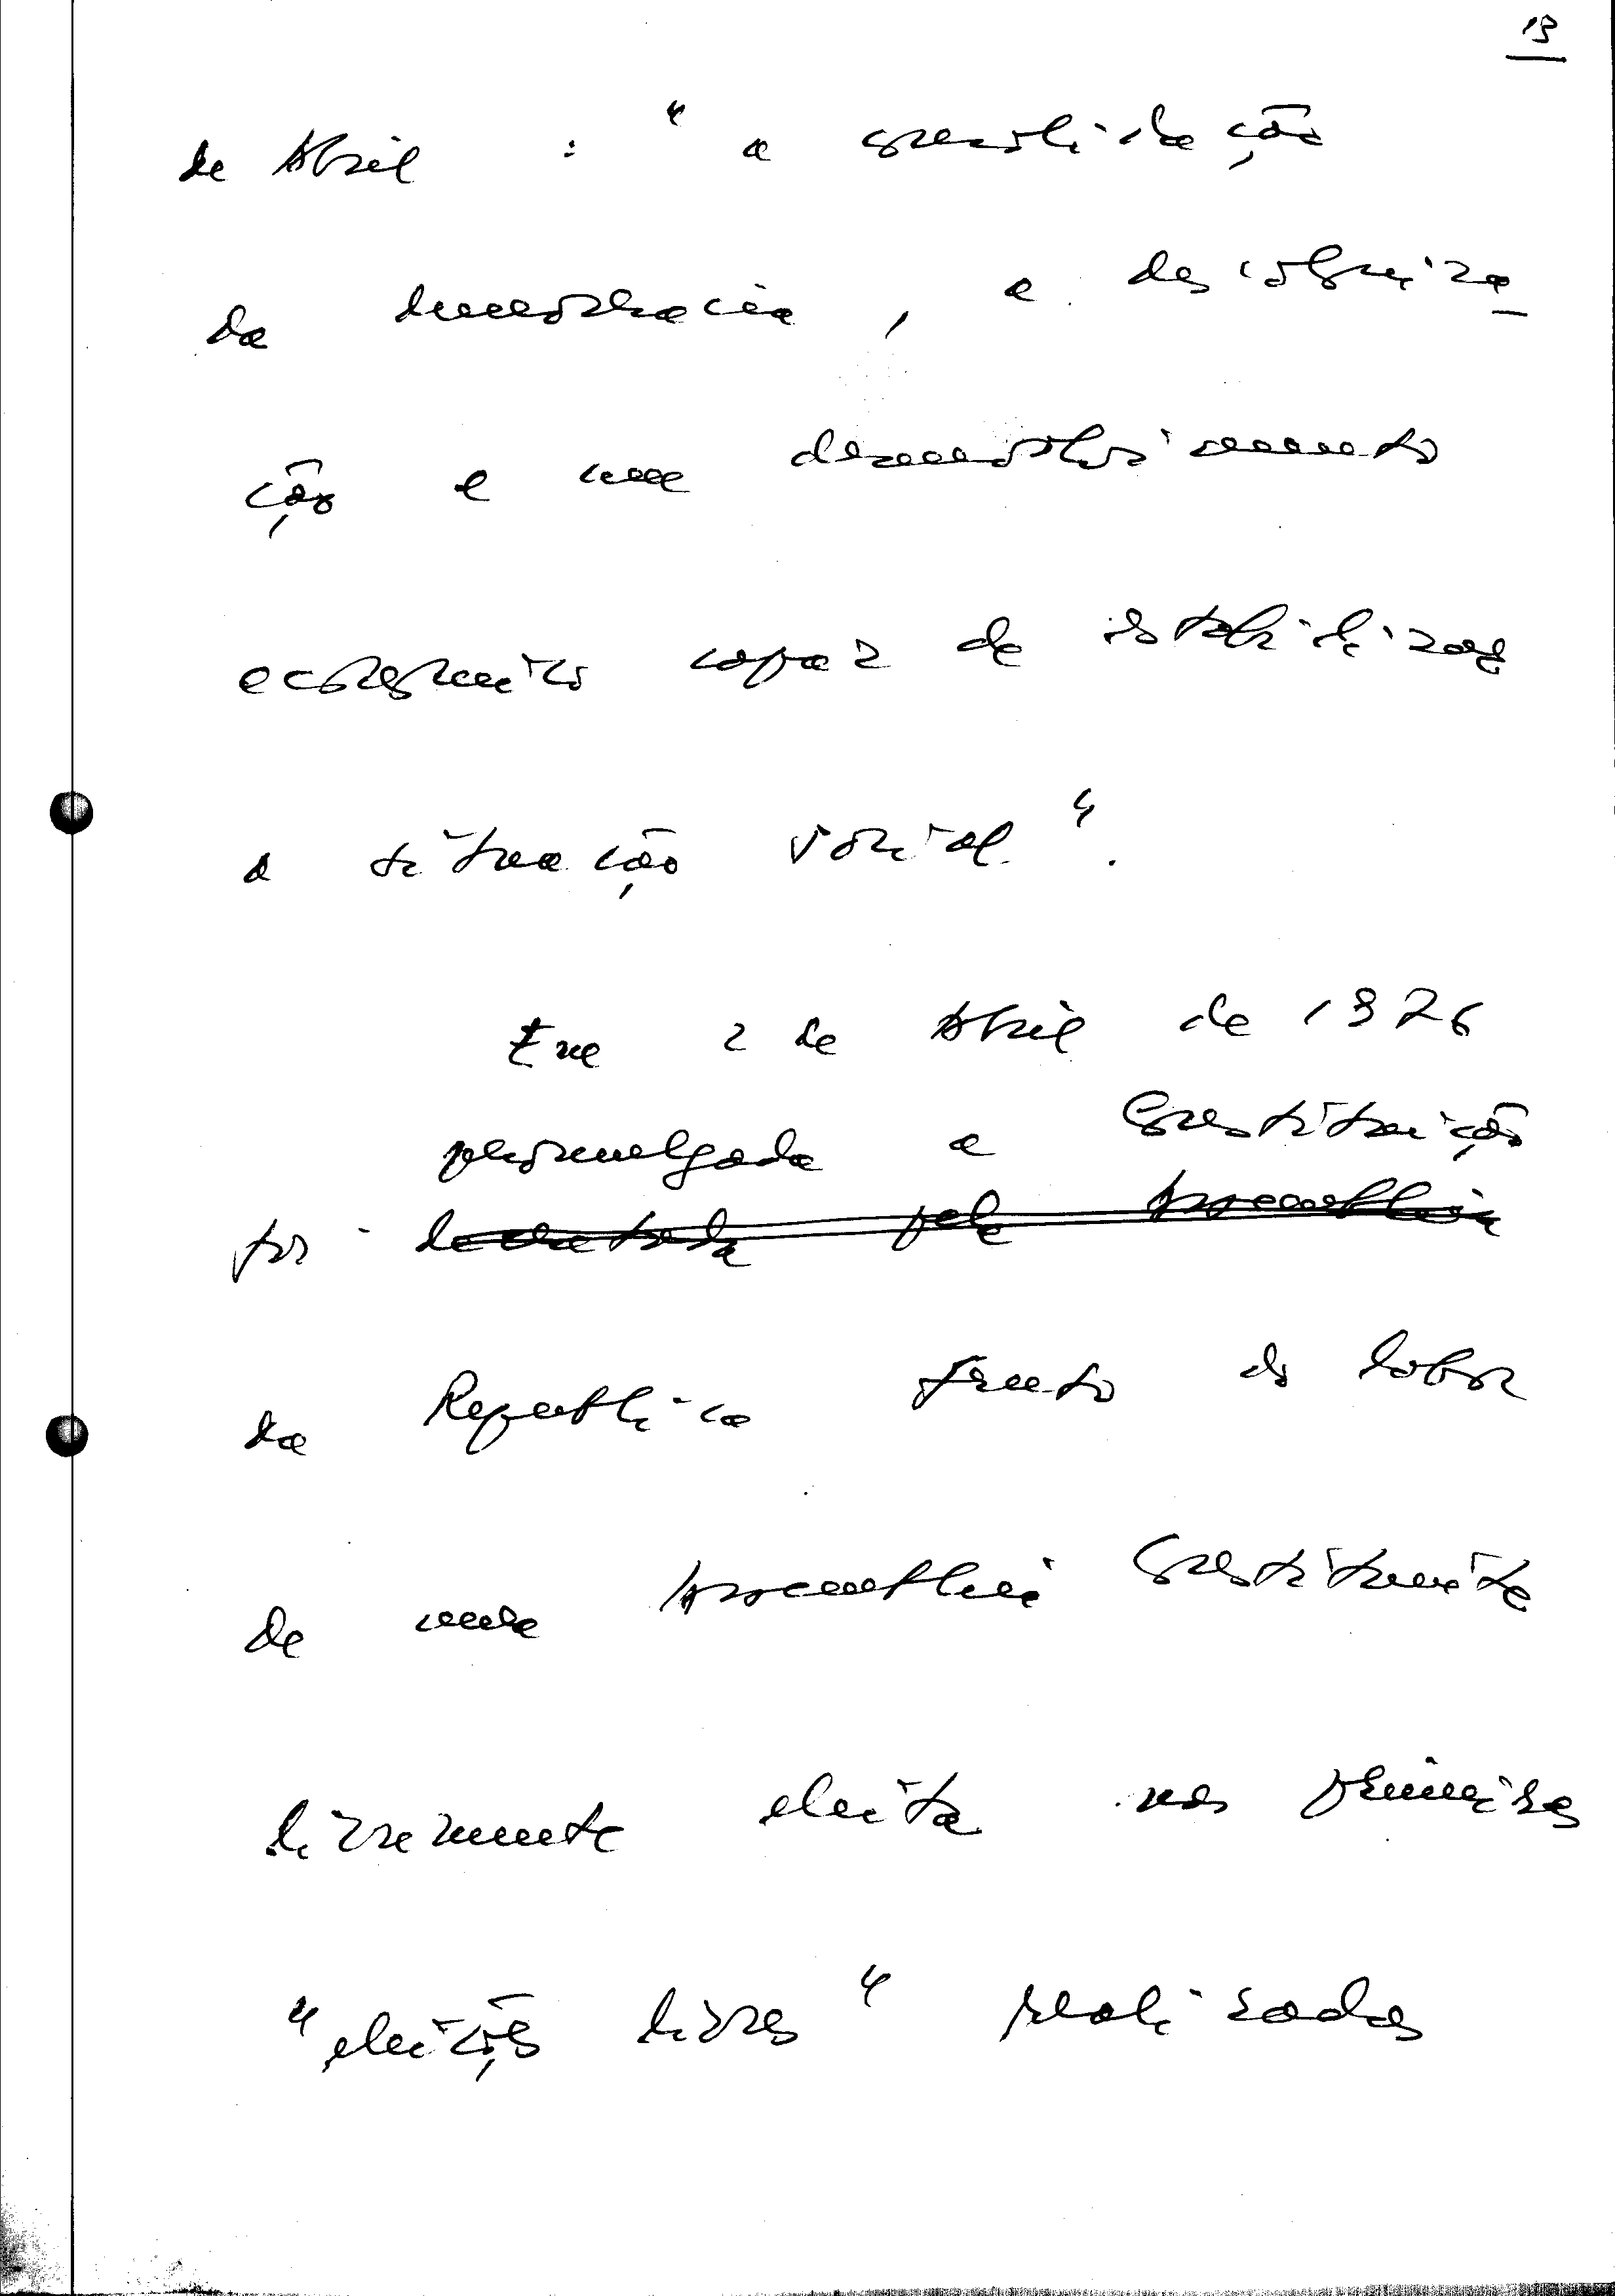 19
de Abril : "a consolidação
da democracia, a descoloniza_
ção e um desenvolvimento
economico capaz de estabilizar
a situação social".
Em 2 de Abril de 1976
promulgada a Constituição
foi decretada pela Assembleia
da Republica fruto do labor
de uma Assembleia Constituinte
livremente eleita nas primeiras
"eleições livres" realizadas